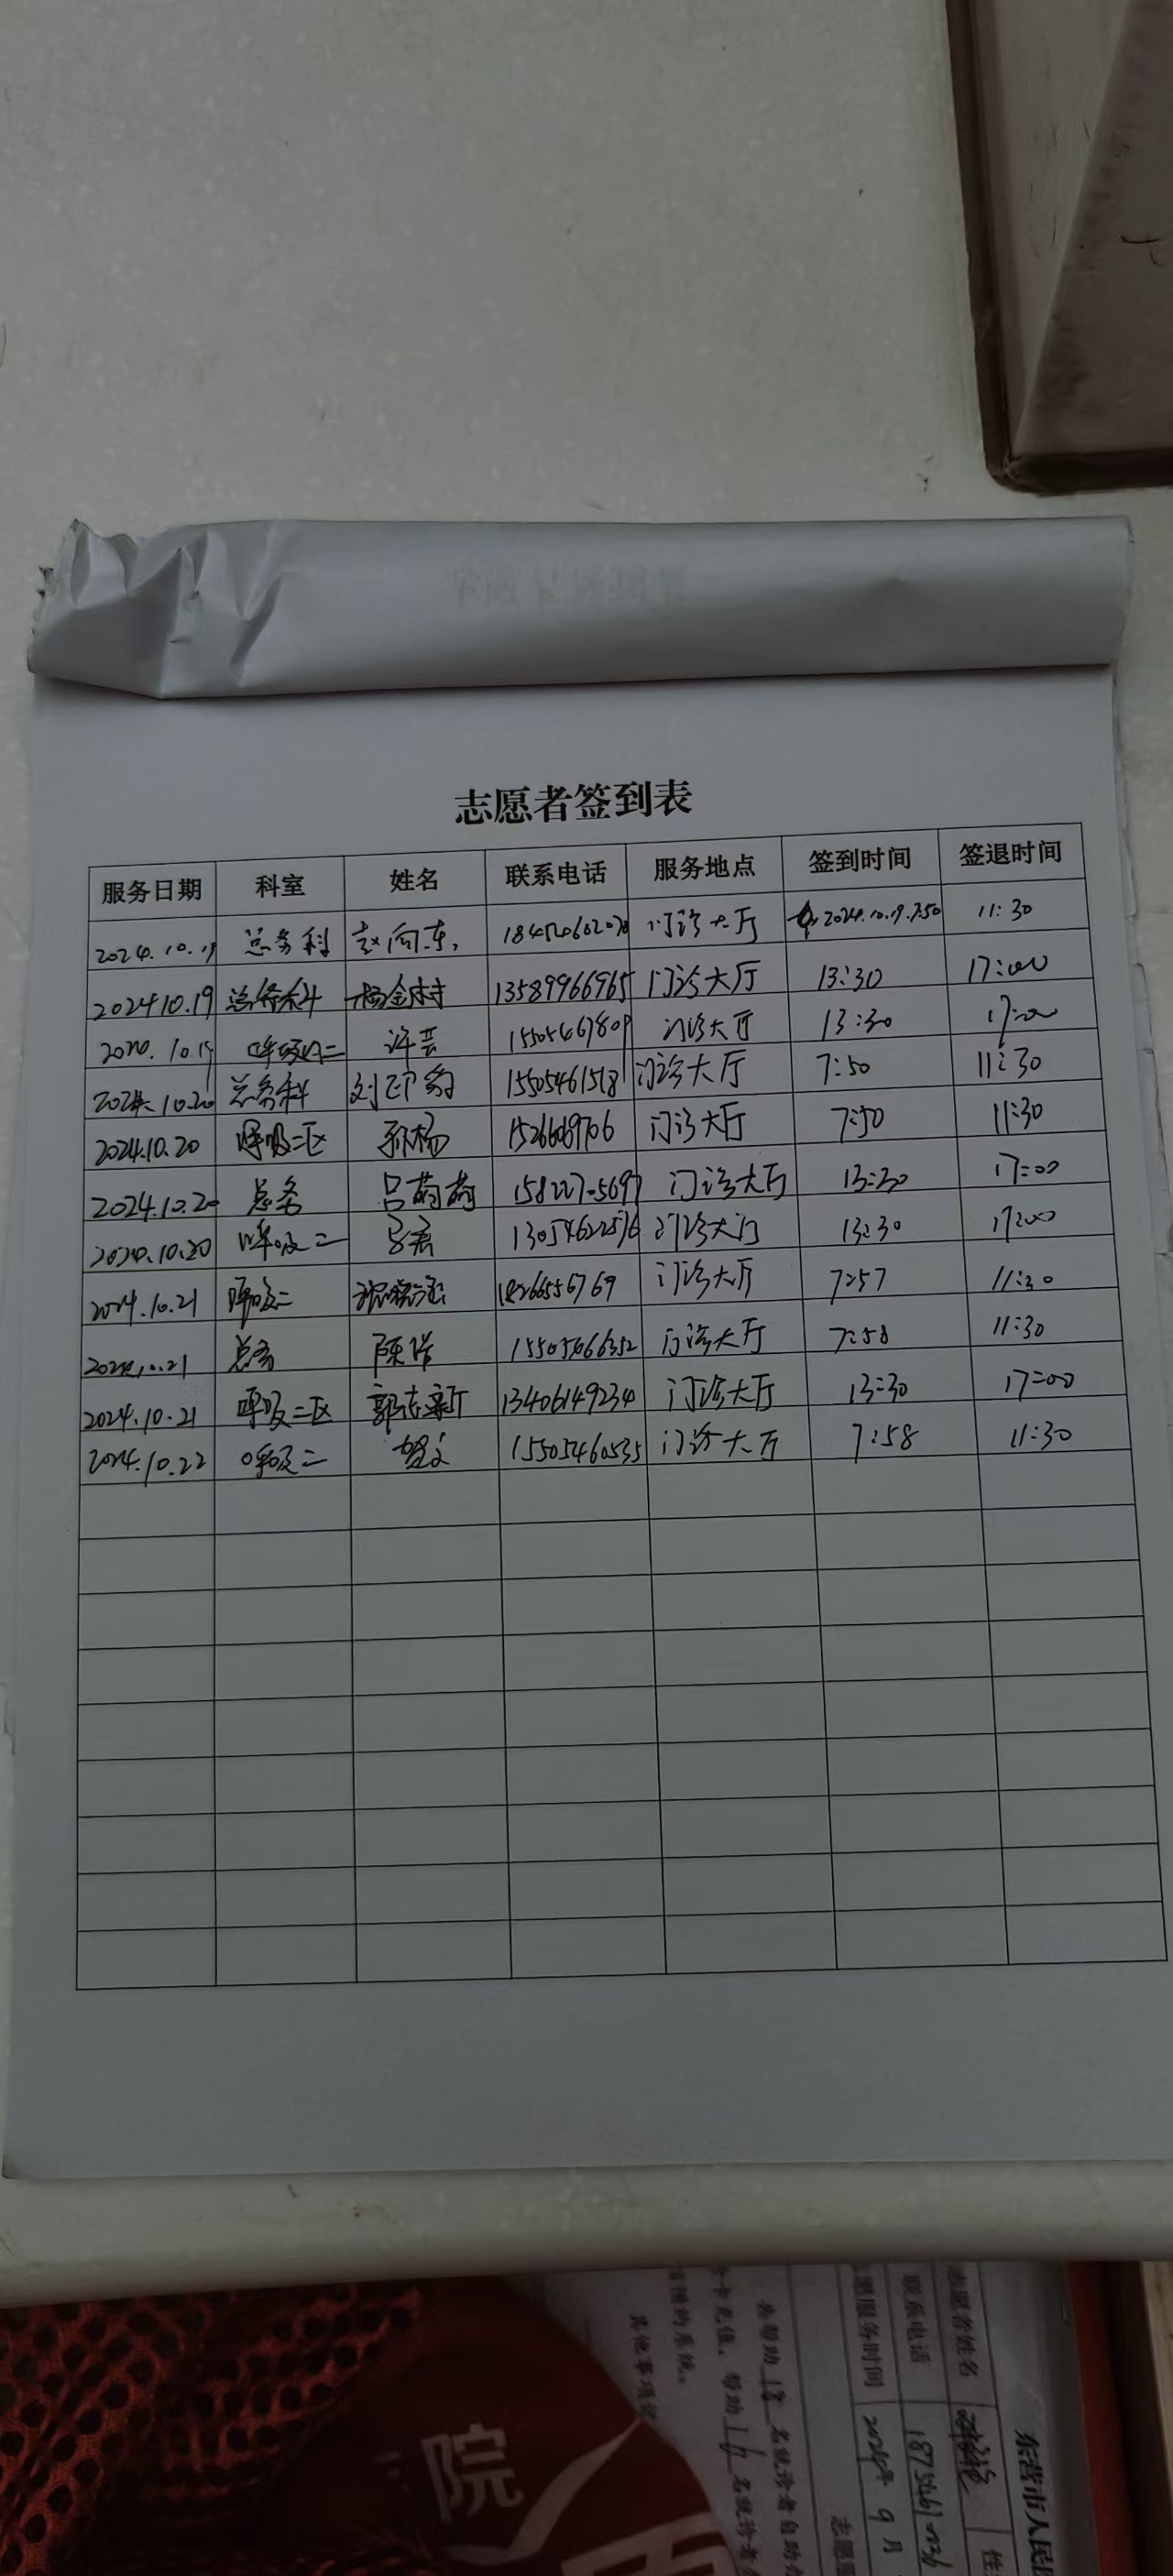 志愿者签到表
服务日期 科室 姓名 联系电话 服务地点 签到时间 签退时间
2024.10.19 总务科 赵向东 门诊大厅 2024.10.19.7:50 11:30
2024 10.19 总务科 杨金树 13589966965 门诊大厅 13:30 17:00
10.19 呼吸内二 许芸 15505467809 门诊大厅 13:30 17:00
2024.10.20 总务科 15505461518 门诊大厅 7:50 11:30
2024.10.20 呼吸二区 孙杨 门诊大厅 7:50 11:30
2024.10.20 总务 吕萌萌 门诊大厅 13:30 17:00
2024.10.20 呼吸二 13054622576 门诊大门 13:30 17:00
2024.10.21 呼吸二 18266556769 门诊大厅 7:57 11:30
2024.10.21 总务 门诊大厅 7:58 11:30
2024.10.21 呼吸二区 郭志新 13406149234 门诊大厅 13:30 17:00
2024.10.22 呼吸二 15505460535 门诊大厅 7:58 11:30
院
东营市人民
志愿者姓名
联系电话
服务时间 9月
共帮助 18 名就诊者自助
卡充值、帮助 16 名就诊者
其他事项